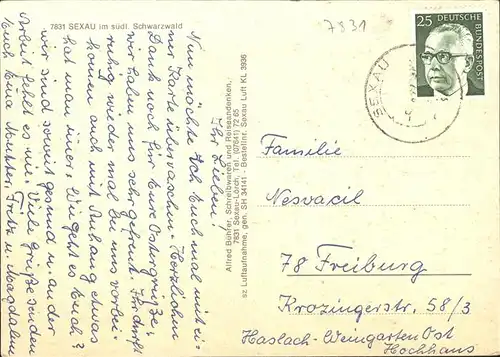 7831 SEXAU im südl. Schwarzwald
7831
25 DEUTSCHE BUNDESPOST
SEXAU
Ihr Lieben!
Nun möchte Ich Euch mal mit ei-
ner Karte überraschen. Herzlichen
Dank noch für Eure Ostergrüße,
wir haben uns sehr gefreut. Ihr dürft
ruhig wieder mal bei uns vorbei-
kommen auch mit Anhang etwas
hat man immer. Wie geht es Euch?
wir sind soweit gesund u. an der
Arbeit fehlt es nie. Viele Grüße senden
Euch Eure Mutter, Fritz u. Magdalena
Alfred Bührer, Schreibwaren und Reiseandenken,
7831 Sexau-Lörch, Tel. (07641) 72 65
sz Luftaufnahme, gen. SH 34141 - Bestellnr. Sexau Luft KL 3936
Familie
Nesvacil
78 Freiburg
Krozingerstr. 58/3
Haslach-Weingarten Ost
Hochhaus